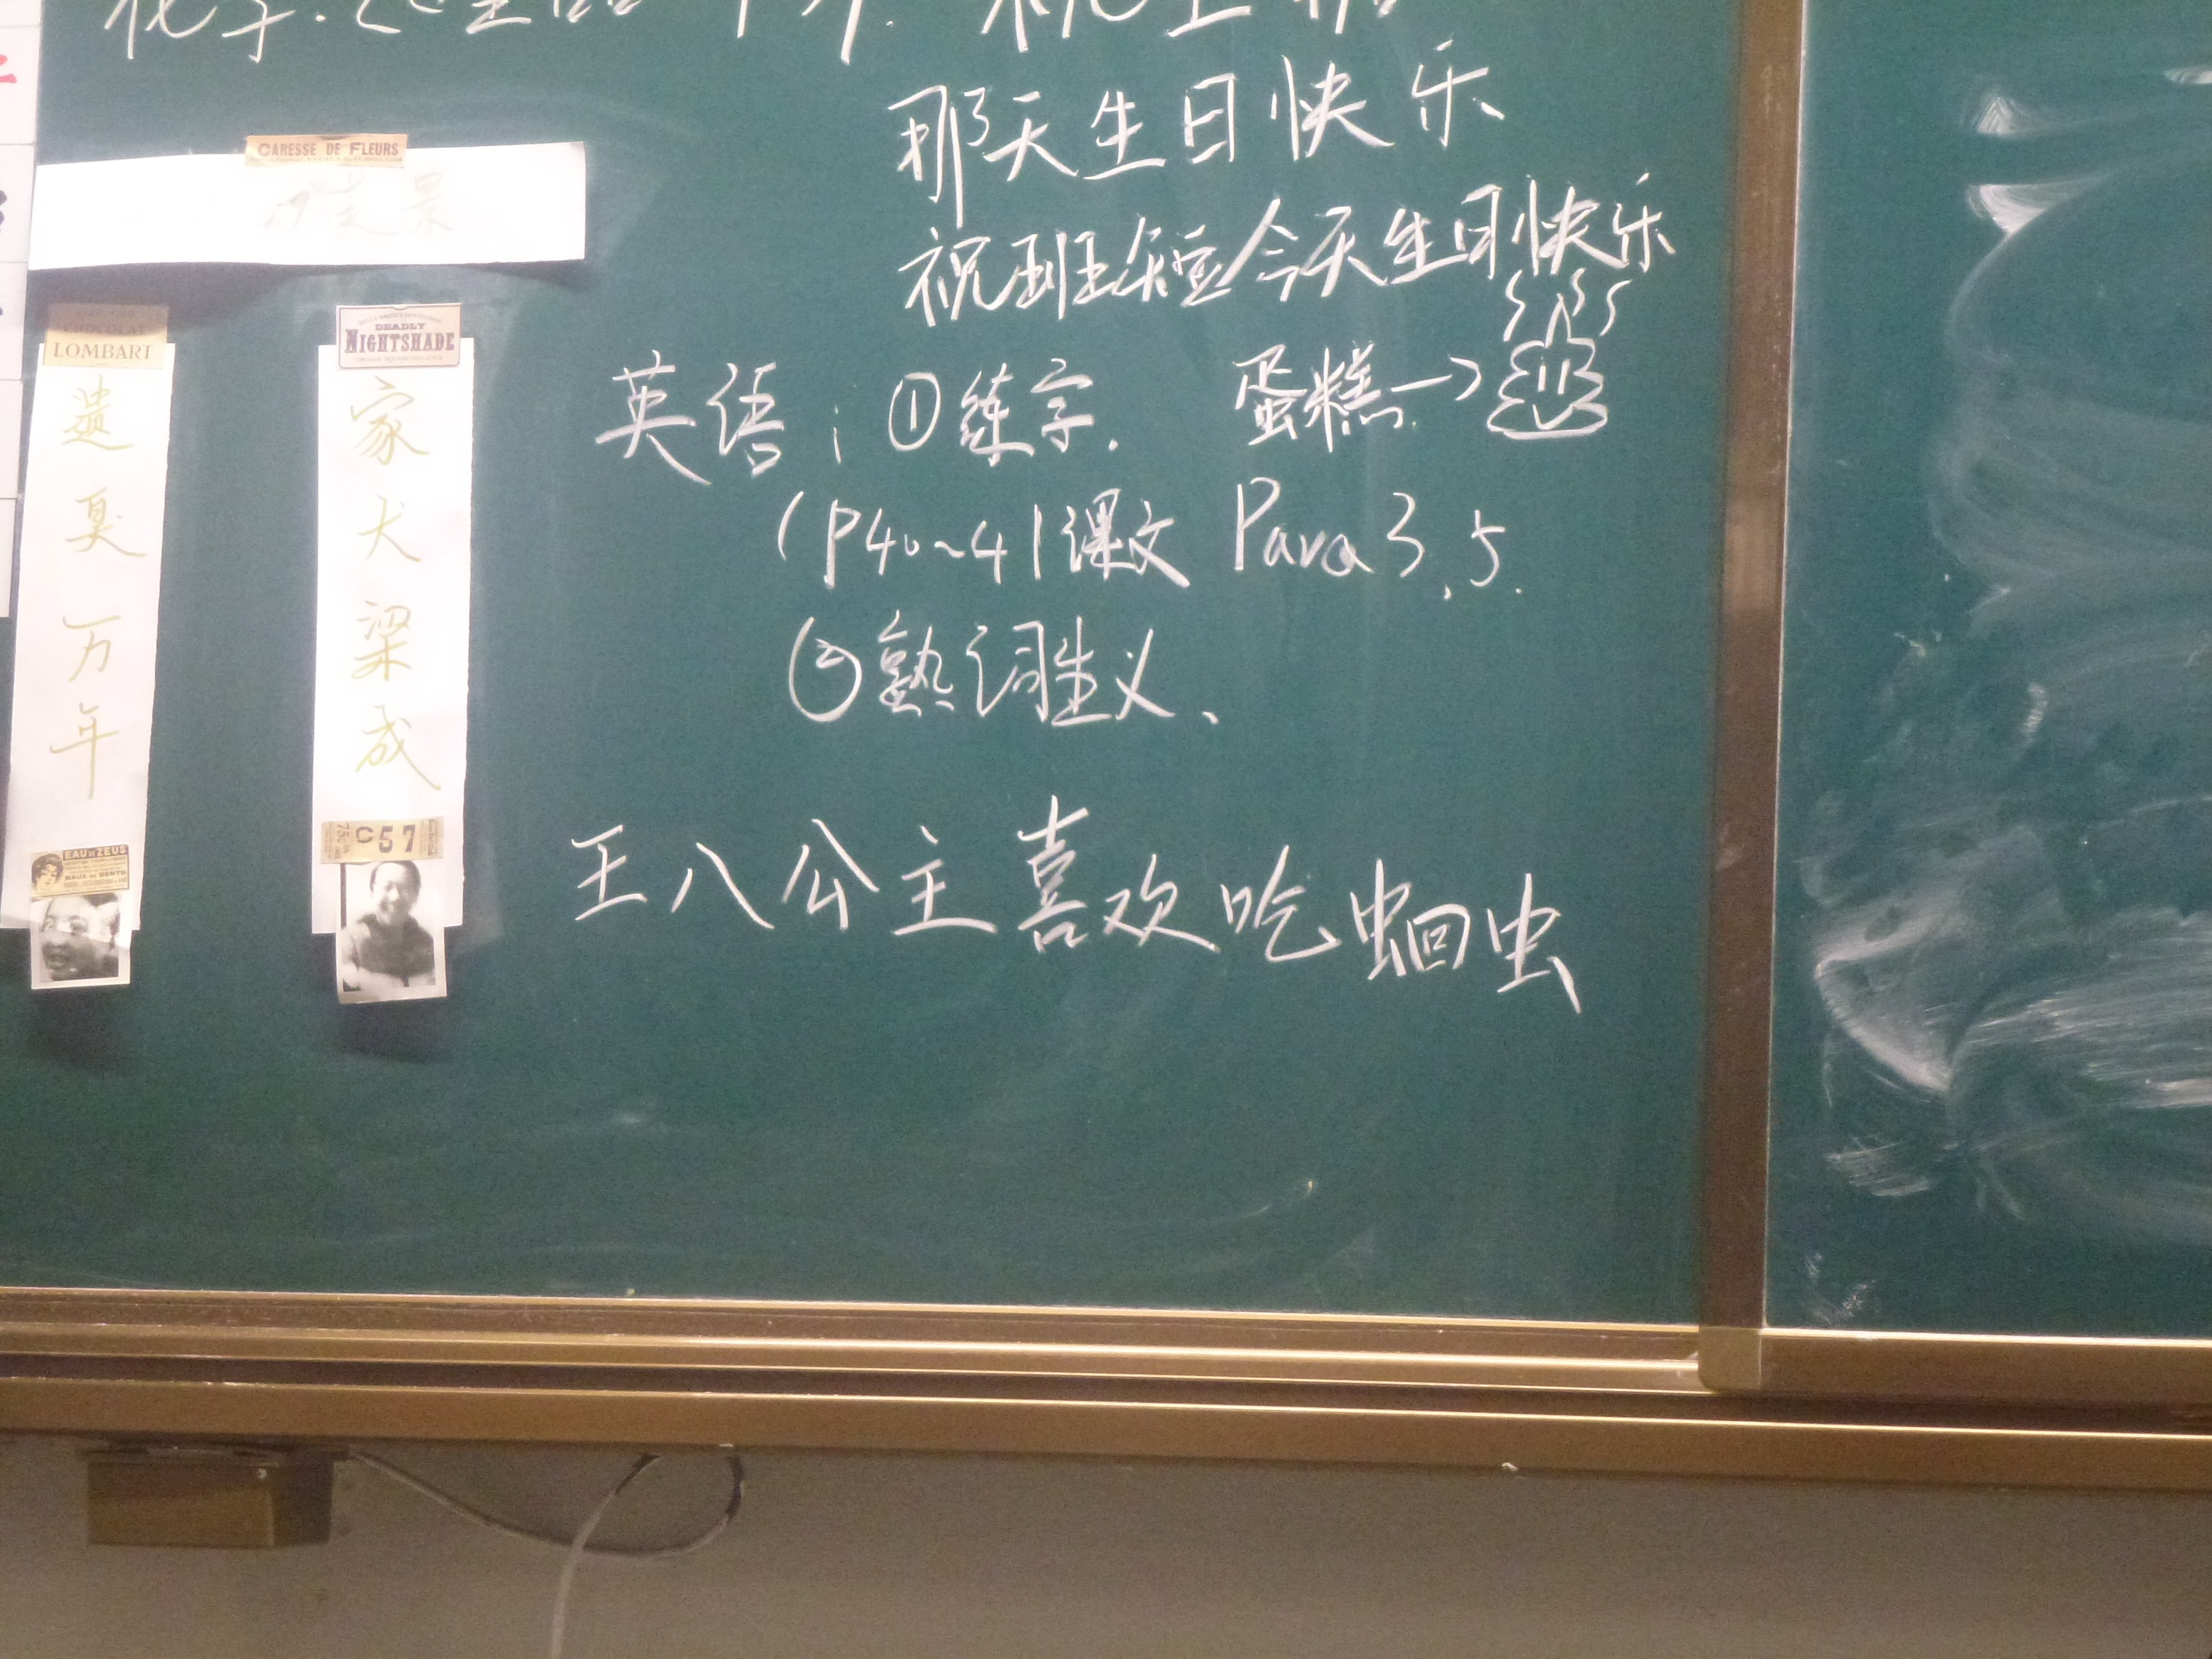 那天生日快乐
祝班短今天生日快乐
英语：①练字. 蛋糕→
(P40~41课文 Para 3、5.
②熟词生义、
王八公主喜欢吃蛔虫
CARESSE DE FLEURS
CHOCOLAT
LOMBART
遗臭万年
EAU DE ZEUS
MAUX DE DENTS
DEADLY
NIGHTSHADE
家犬梁成
C57